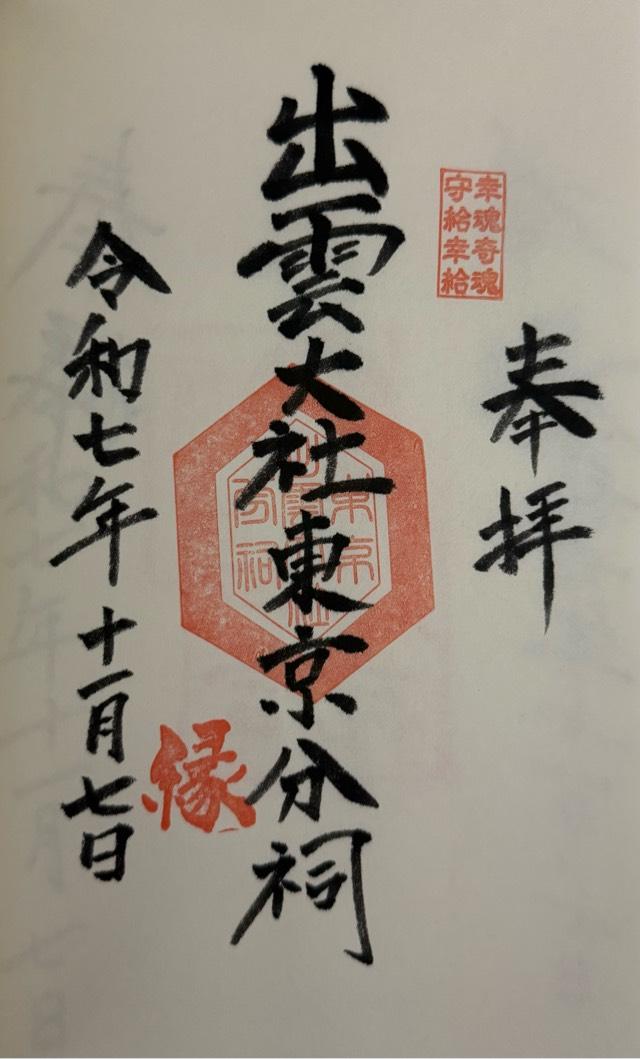 奉拝
幸魂奇魂
守給幸給
出雲大社東京分祠
出雲大社
東京
分祠
縁
令和七年十一月七日